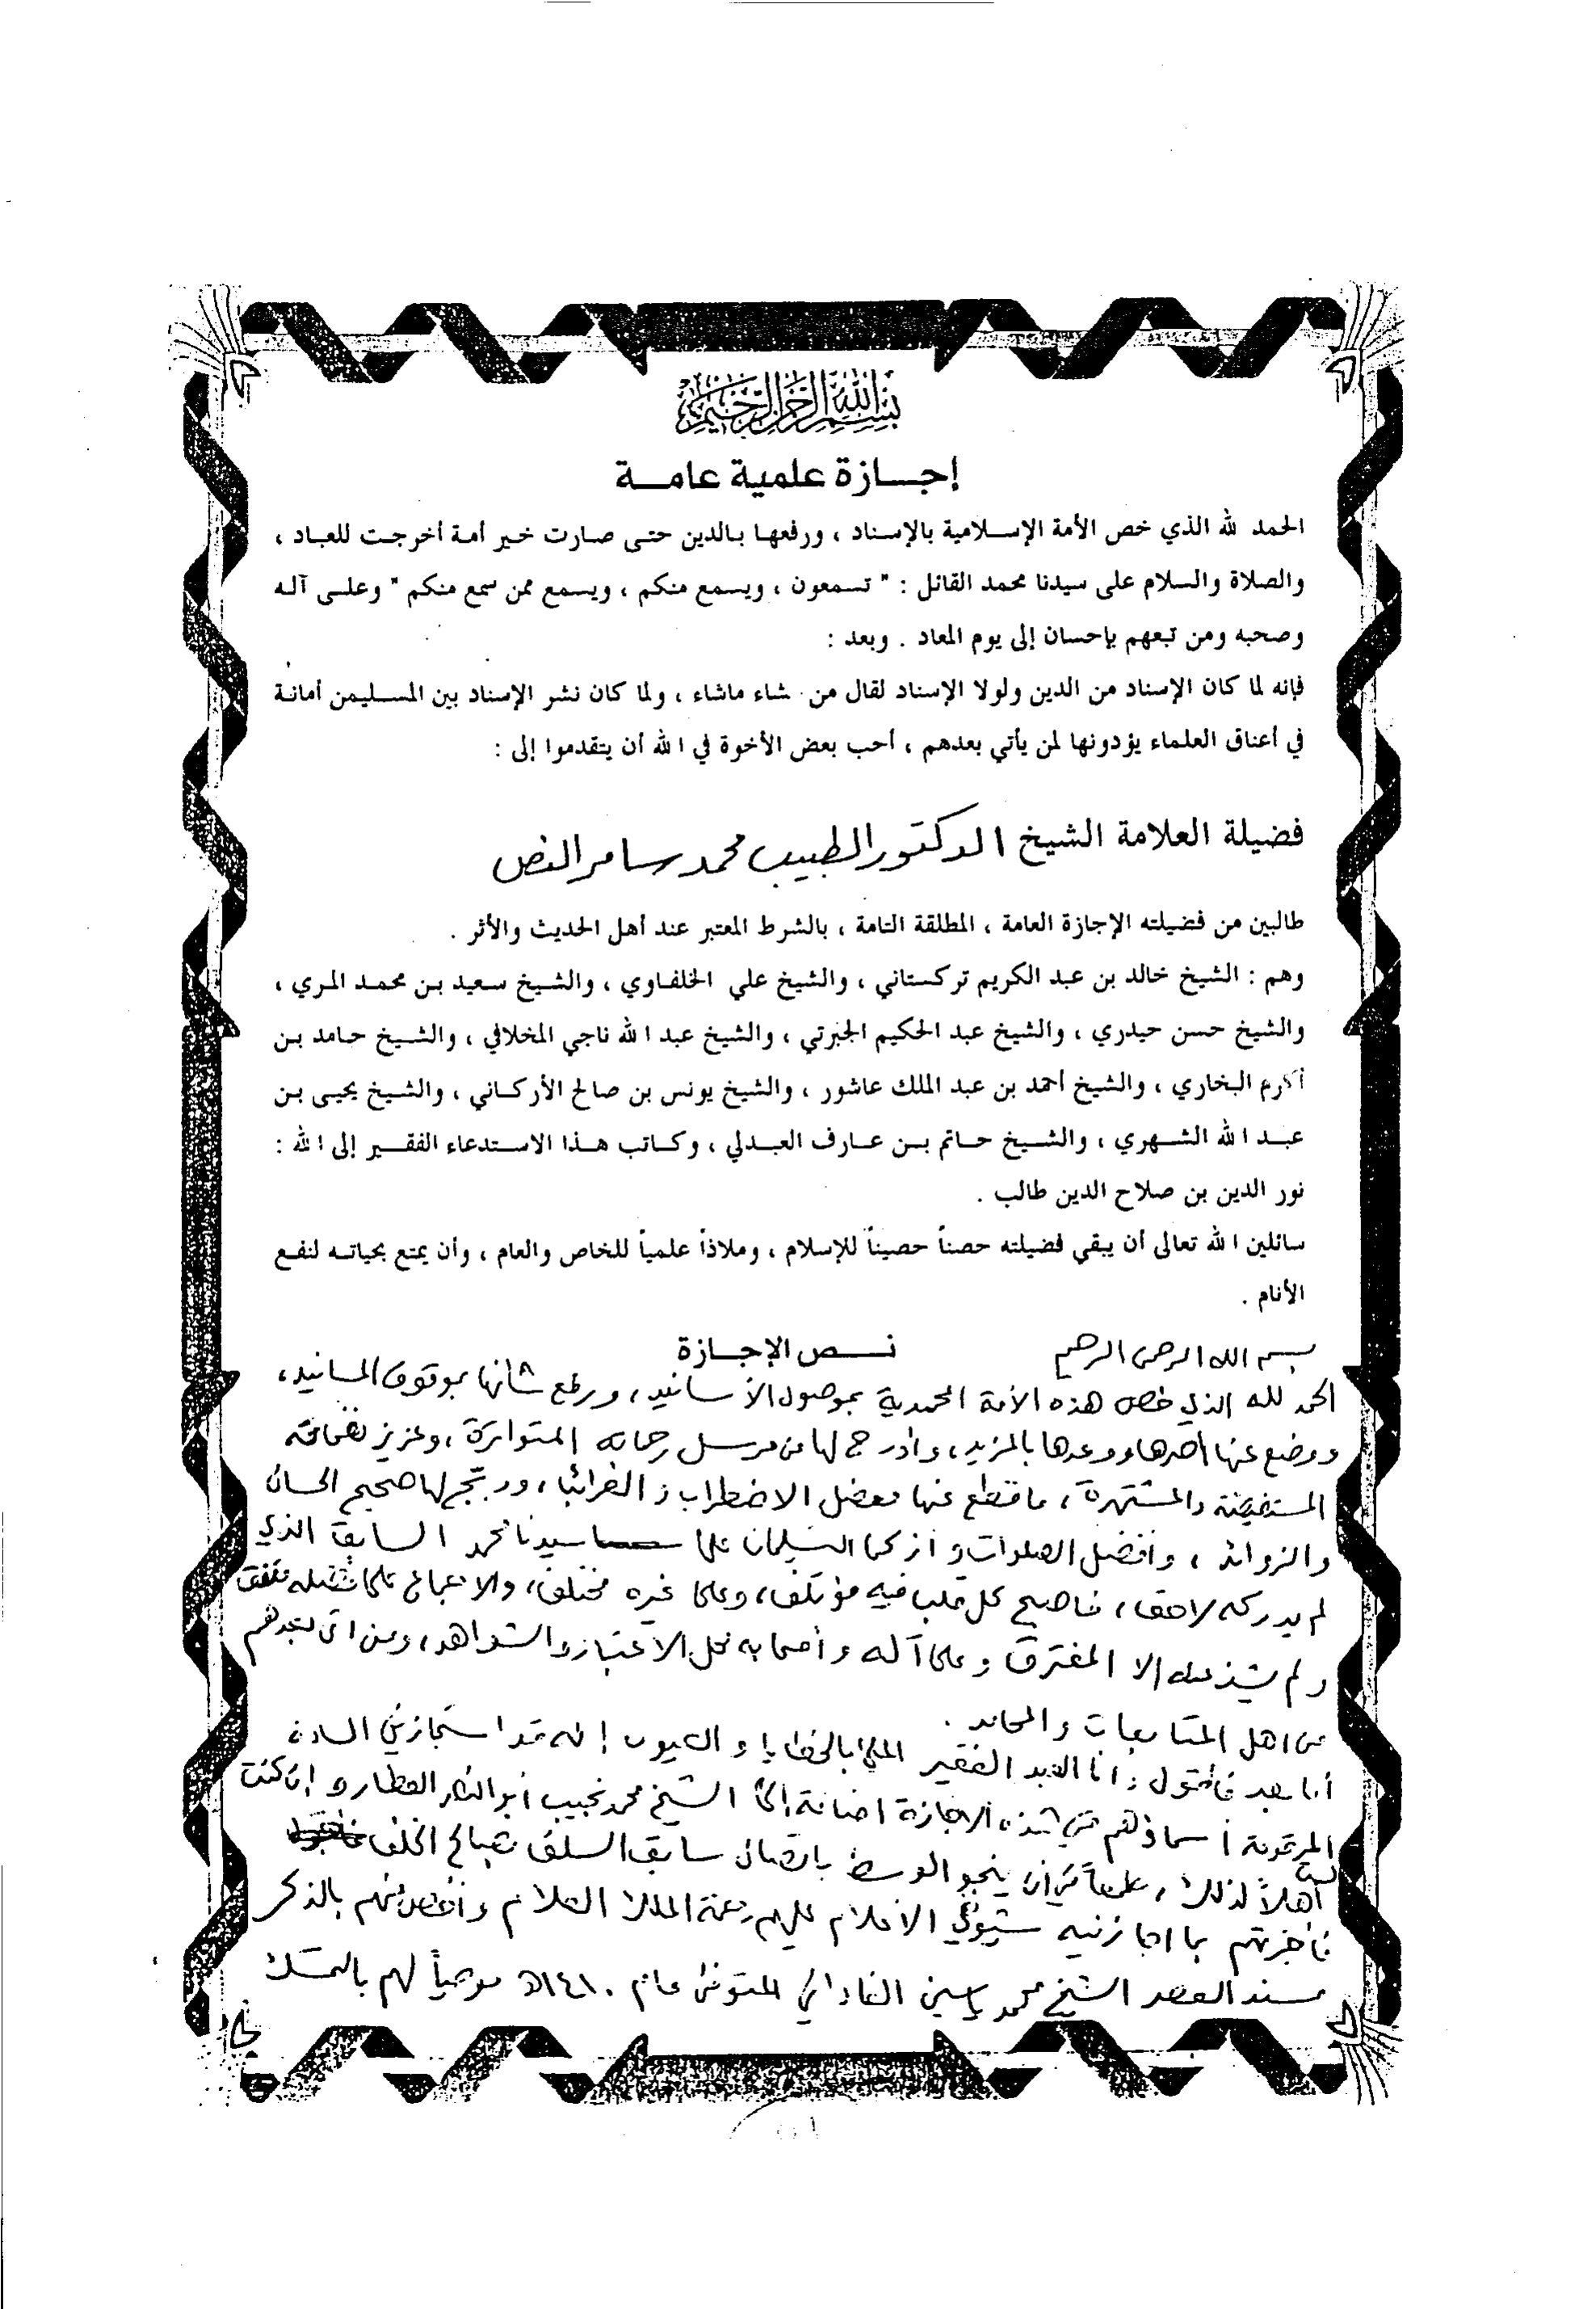 بسم الله الرحمن الرحيم
إجازة علمية عامة
الحمد لله الذي خص الأمة الإسلامية بالإسناد ، ورفعها بالدين حتى صارت خير أمة أخرجت للعباد ،
والصلاة والسلام على سيدنا محمد القائل : " تسمعون ، ويسمع منكم ، ويسمع ممن سمع منكم " وعلى آله
وصحبه ومن تبعهم بإحسان إلى يوم المعاد . وبعد :
فإنه لما كان الإسناد من الدين ولولا الإسناد لقال من شاء ماشاء ، ولما كان نشر الإسناد بين المسليمن أمانة
في أعناق العلماء يؤدونها لمن يأتي بعدهم ، أحب بعض الأخوة في الله أن يتقدموا إلى :
فضيلة العلامة الشيخ الدكتور الطبيب محمد سامر النص
طالبين من فضيلته الإجازة العامة ، المطلقة التامة ، بالشرط المعتبر عند أهل الحديث والأثر .
وهم : الشيخ خالد بن عبد الكريم تركستاني ، والشيخ علي الخلفاوي ، والشيخ سعيد بن محمد المري ،
والشيخ حسن حيدري ، والشيخ عبد الحكيم الجبرتي ، والشيخ عبد الله ناجي المخلافي ، والشيخ حامد بن
أكرم البخاري ، والشيخ أحمد بن عبد الملك عاشور ، والشيخ يونس بن صالح الأركاني ، والشيخ يحيى بن
عبد الله الشهري ، والشيخ حاتم بن عارف العبدلي ، وكاتب هذا الاستدعاء الفقير إلى الله :
نور الدين بن صلاح الدين طالب .
سائلين الله تعالى أن يبقي فضيلته حصناً حصيناً للإسلام ، وملاذاً علمياً للخاص والعام ، وأن يمتع بحياته لنفع
الأنام .
نص الإجازة
بسم الله الرحمن الرحيم
الحمد لله الذي خص هذه الأمة المحمدية بموصول الأسانيد، ورفع شأنها بموقوف المسانيد،
ووضع عنها إصرها ووعدها بالمزيد، وأدرج لها من مرسل رحماته المتواترة، وعزيز
المستفيضة والمشتهرة، فانقطع عنها معضل الاضطراب و الغرائب، لها صحيح الحسان
والزوائد، وأفضل الصلوات و أزكى التسليمات على سيدنا محمد السابق الذي
لم يدركه لاحق، فأصبح كل قلب فيه مؤتلف، وعلى غيره مختلف، والاجماع على متفق
ولم يشذ عنه إلا المفترق وعلى آله و أصحابه محل الاعتبار والشواهد، ومن أتى بعدهم
من أهل المتابعات والمحامد .
أما بعد فأقول : أنا العبد الفقير الملئ بالخطايا و العيوب إنه قد استجازني السادة
المرقومة أسماؤهم في هذه الإجازة اضافة إلى الشيخ محمد نجيب أبو الذكر العطار و إن كنت لست
أهلاً لذلك، طمعاً في أن ينجو الوسط باتصال سابق السلف بصالح الخلف
فأجزتهم بما اجازنيه شيوخي الأعلام عليهم رحمة الملك العلام وأخص منهم بالذكر
مسند العصر الشيخ محمد ياسين الفاداني المتوفى عام ١٤١٠ه موصياً لهم بالتمسك